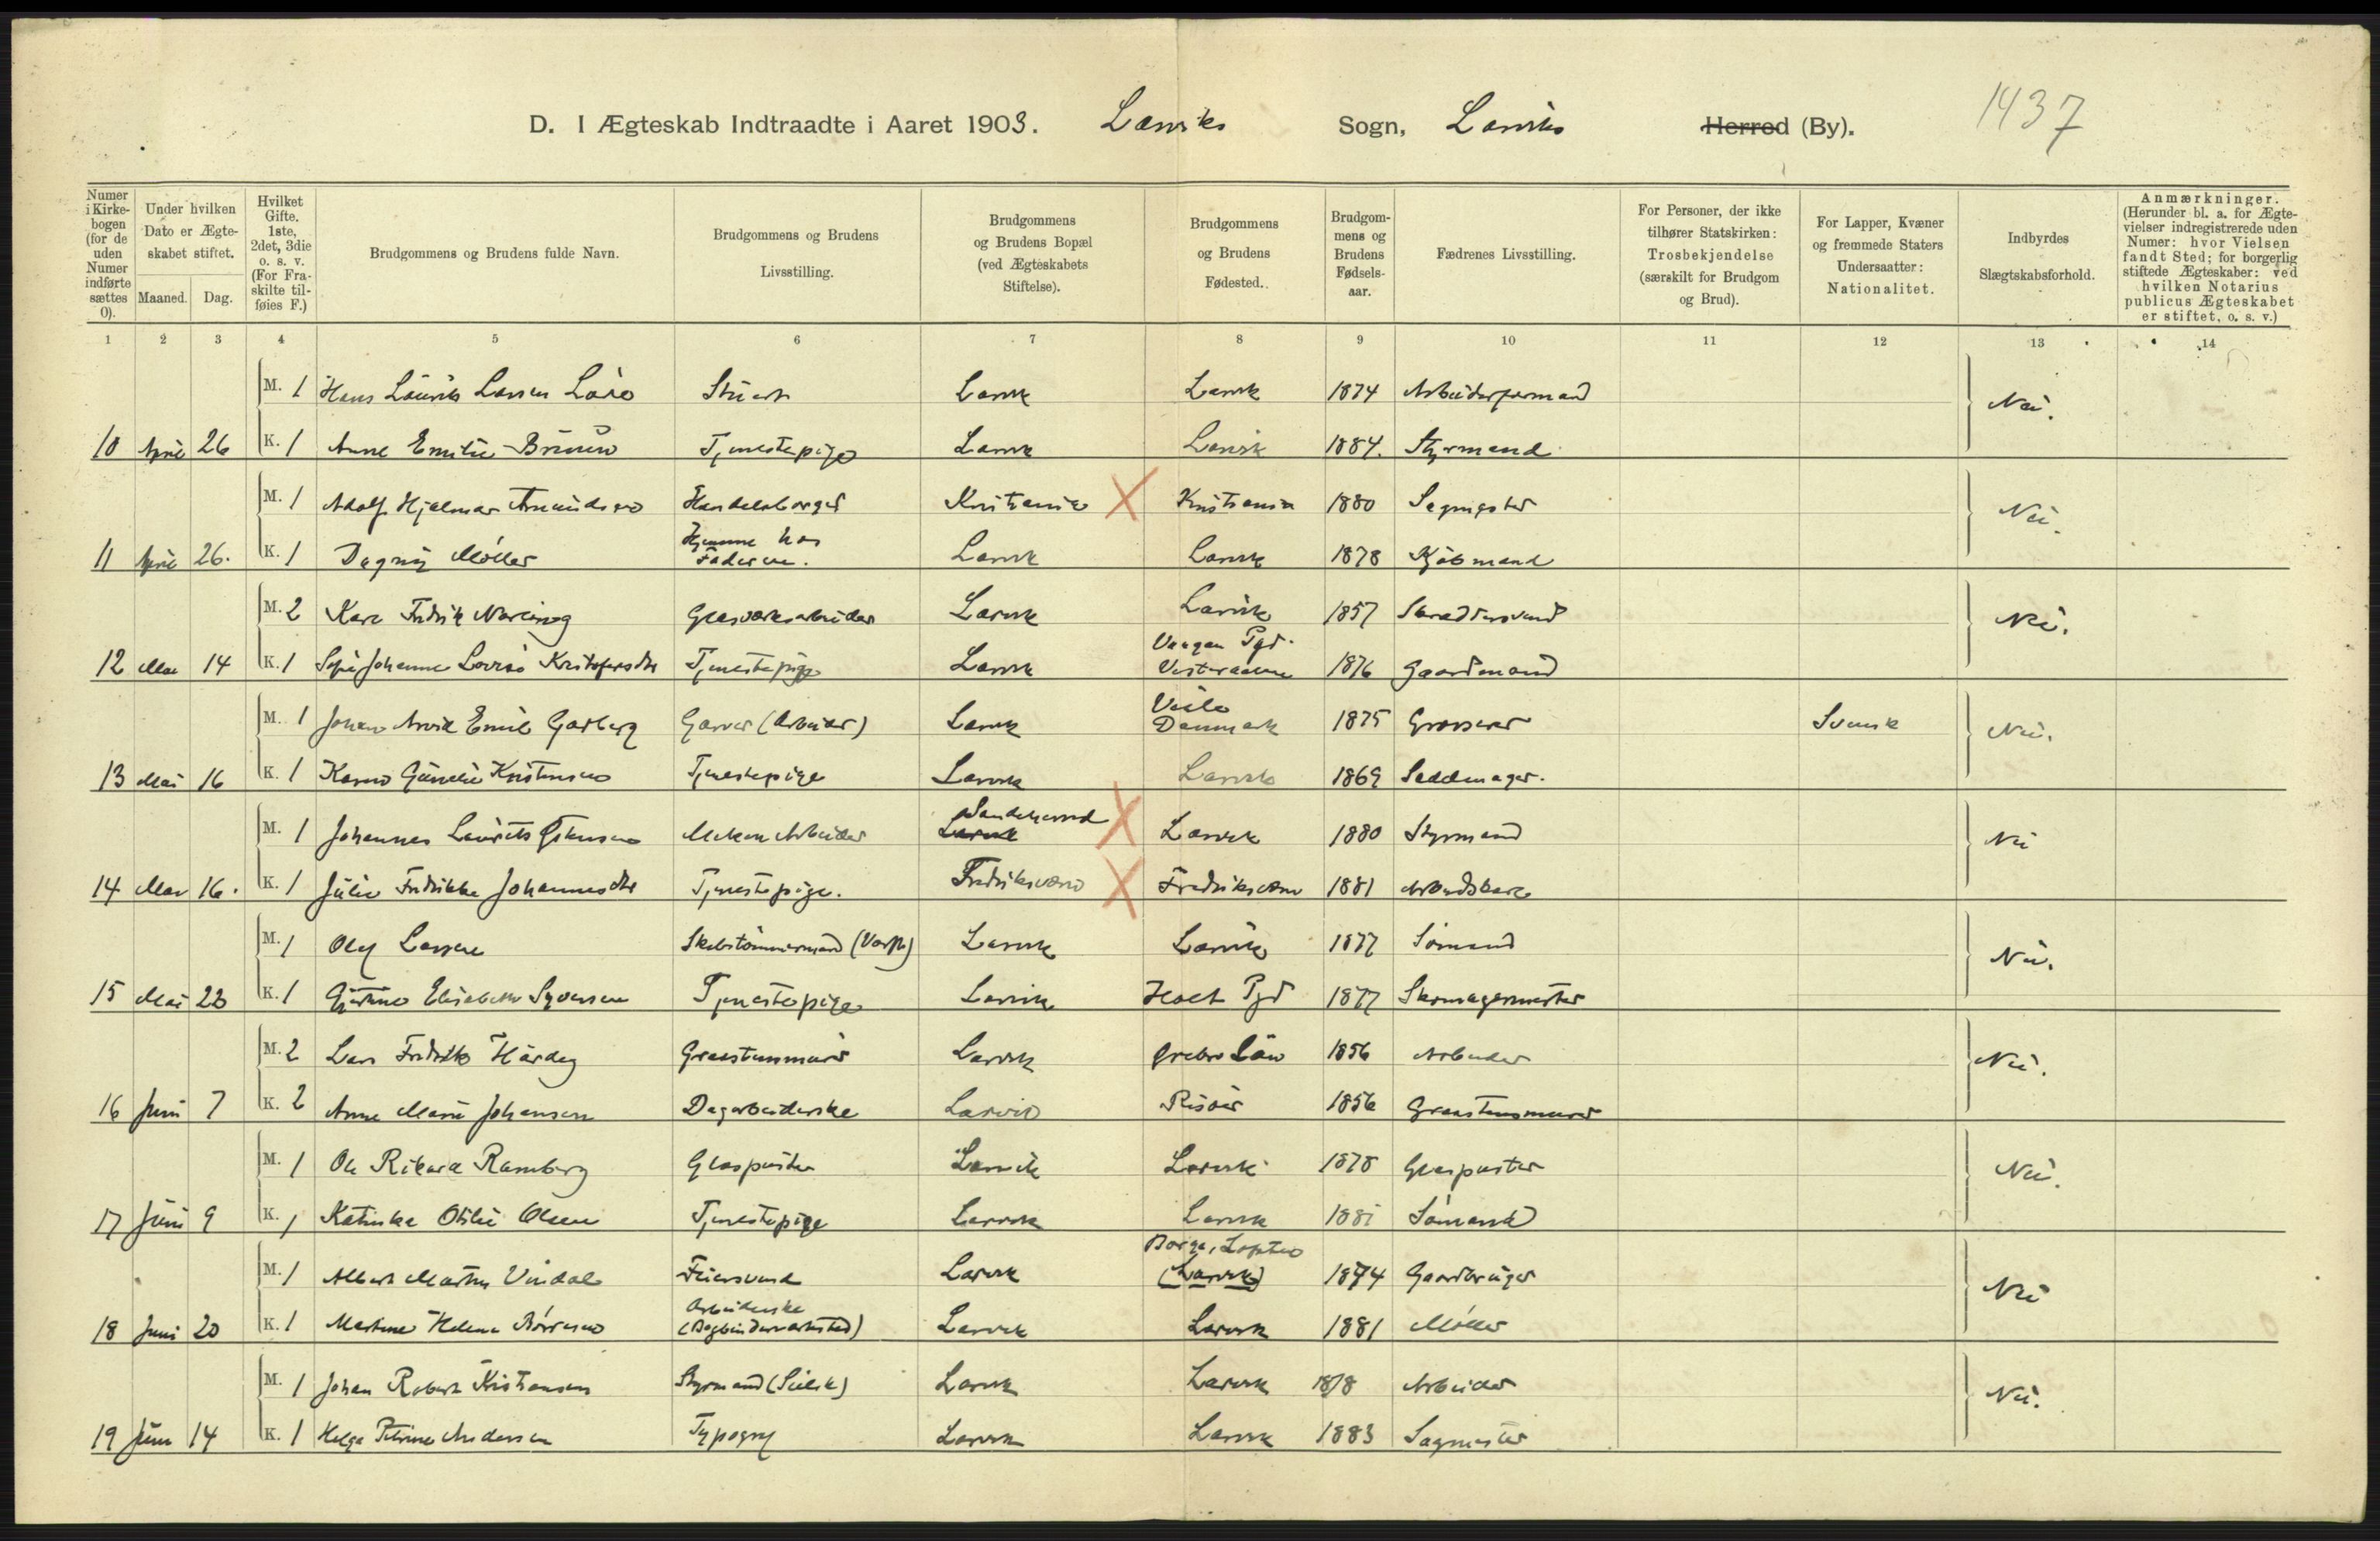 1437
D. I Ægteskab Indtraadte i Aaret 1903. Larviks Sogn, Larviks Herred (By).
Numer i Kirkebogen (for de uden Numer indførte sættes 0).
Under hvilken Dato er Ægteskabet stiftet.
Maaned. Dag.
Hvilket Gifte. 1ste, 2det, 3die o. s. v. (For Fraskilte tilføies F.)
Brudgommens og Brudens fulde Navn.
Brudgommens og Brudens Livsstilling.
Brudgommens og Brudens Bopæl (ved Ægteskabets Stiftelse).
Brudgommens og Brudens Fødested.
Brudgommens og Brudens Fødselsaar.
Fædrenes Livsstilling.
For Personer, der ikke tilhører Statskirken: Trosbekjendelse (særskilt for Brudgom og Brud).
For Lapper, Kvæner og fremmede Staters Undersaatter: Nationalitet.
Indbyrdes Slægtskabsforhold.
Anmærkninger. (Herunder bl. a. for Ægtevielser indregistrerede uden Numer: hvor Vielsen fandt Sted; for borgerlig stiftede Ægteskaber: ved hvilken Notarius publicus Ægteskabet er stiftet, o. s. v.)
1 2 3 4 5 6 7 8 9 10 11 12 13 14
M. 1 Hans Lauritz Larsen Larvik Larvik 1874 Arbeiderformand Nei.
10 April 26 K. 1 Anne Emilie Tjenestepige Larvik Larvik 1884. Styrmand
M. 1 Adolf Hjalmar Amundsen Handelsborger Kristiania X Kristiania 1880 Sagmester Nei.
11 April 26. K. 1 Dagny Møller Hjemme hos Faderen. Larvik Larvik 1878 Kjøbmand
M. 2 Karl Fredrik Glasværksarbeider Larvik Larvik 1857 Skræddersvend Nei.
12 Mai 14 K. 1 Sofie Johanne Lovise Kristofersdtr Tjenestepige Larvik Vaagan Pgd. Vesteraalen 1876 Gaardmand
M. 1 Johan Arvid Emil Garberg Garver (Arbeider) Larvik Veile Danmark 1875 Grosserer Svensk Nei.
13 Mai 16 K. 1 Karen Gunelie Kristensen Tjenestepige Larvik Larvik 1869 Sadelmager.
M. 1 Johannes Laurits Mekan Arbeider Sandeherred Larvik X Larvik 1880 Styrmand Nei
14 Mai 16. K. 1 Julie Fredrikke Johannesdtr Tjenestepige. Fredriksværn X Fredriksværn 1881
M. 1 Olaf Larsen Skibstømmermand (Værft) Larvik Larvik 1877 Sømand Nei.
15 Mai 23 K. 1 Elisabeth Syversen Tjenestepige Larvik Holt Pgd 1877 Skomagermester
M. 2 Lars Fredrik Hårdeg Graastensmurer Larvik Ørebro Län 1856 Arbeider Nei.
16 Juni 7 K. 2 Anne Marie Johansen Dagarbeiderske Larvik Risør 1856 Graastensmurer
M. 1 Ole Rikard Ramberg Glaspuster Larvik Larvik 1878 Glaspuster Nei.
17 Juni 9 K. 1 Katinka Otilie Olsen Tjenestepige Larvik Larvik 1881 Sømand
M. 1 Albert Martin Vindal Feiersvend Larvik Borge, Lofoten (Larvik) 1874 Gaardbruger Nei
18 Juni 20 K. 1 Martine Helene Børresen Arbeiderske (Bogbinderværksted) Larvik Larvik 1881 Møller
M. 1 Johan Robert Kristensen Styrmand (Seilsk) Larvik Larvik 1878 Arbeider Nei.
19 Juni 14 K. 1 Helga Petrine Andersen Typograf Larvik Larvik 1883 Sagmester